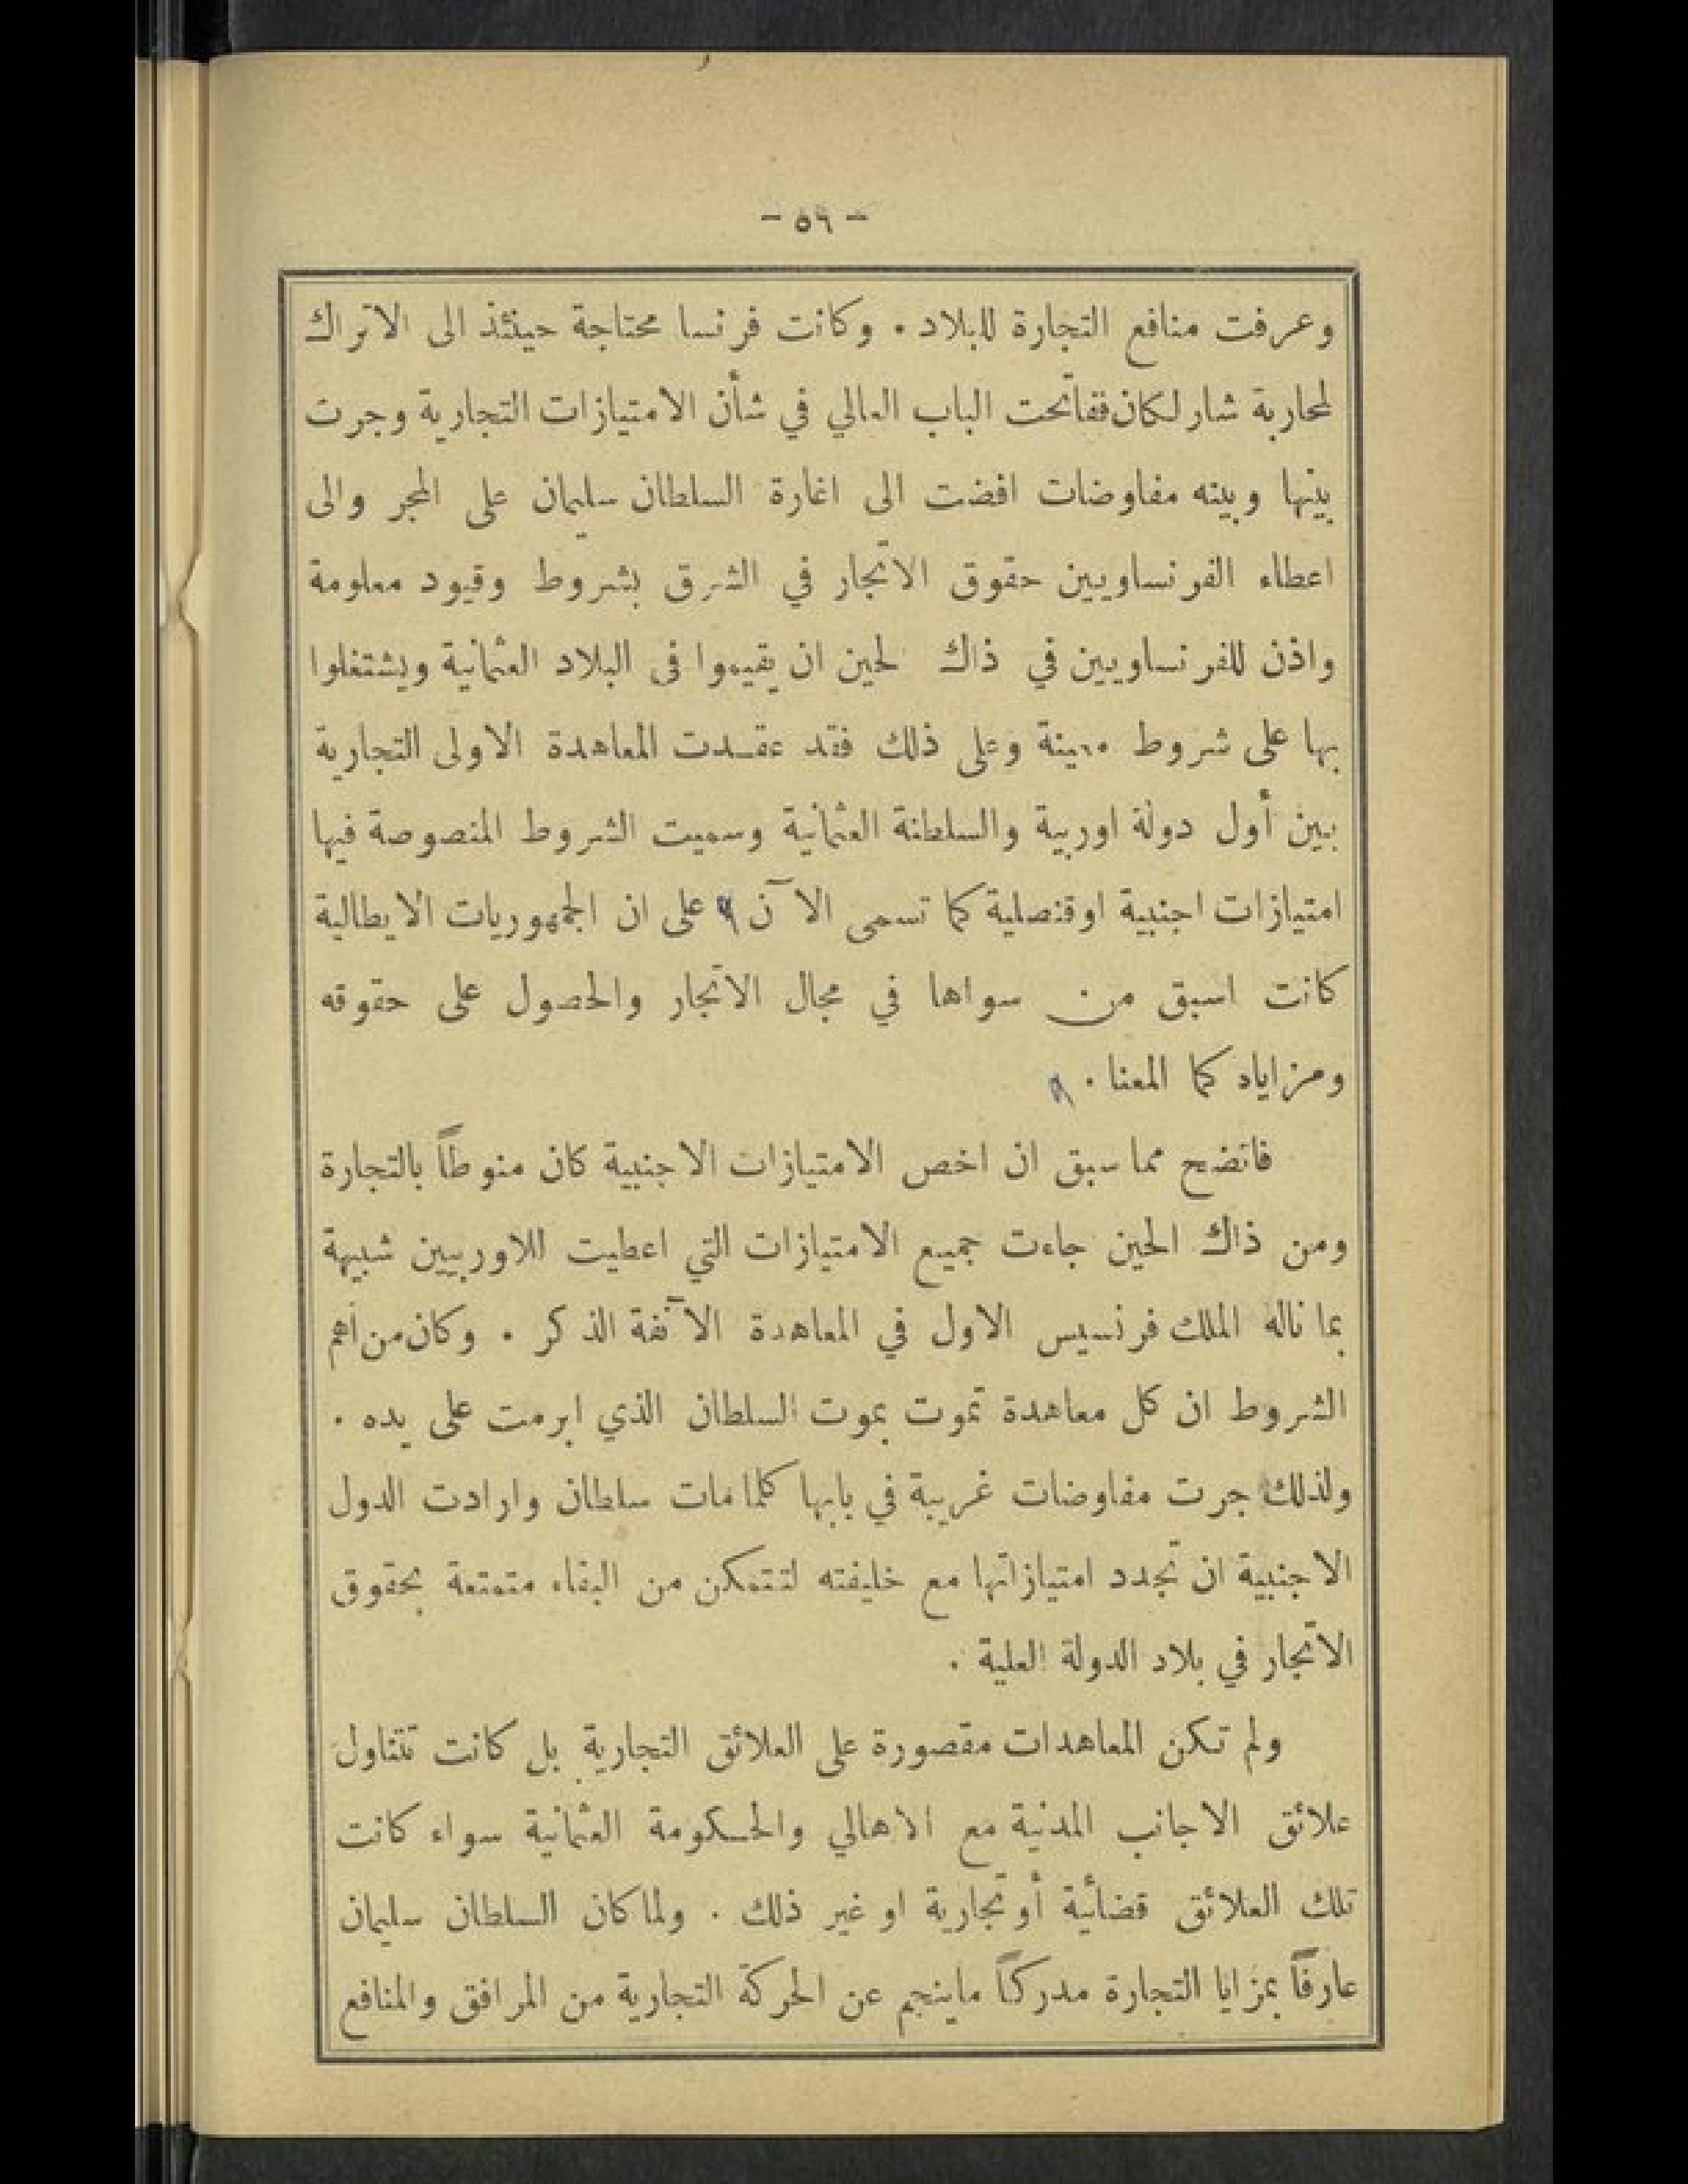 - ٥٦ -
وعرفت منافع التجارة للبلاد . وكانت فرنسا محتاجة حينئذ الى الاتراك
لمحاربة شارلكان ففاتحت الباب العالي في شأن الامتيازات التجارية وجرت
بينها وبينه مفاوضات افضت الى اغارة السلطان سليمان على المجر والى
اعطاء الفرنساويين حقوق الاتجار في الشرق بشروط وقيود معلومة
واذن للفرنساويين في ذاك لحين ان يقيموا فى البلاد العثمانية ويشتغلوا
بها على شروط معينة وعلى ذلك فقد عقدت المعاهدة الاولى التجارية
بين أول دولة اوربية والسلطنة العثمانية وسميت الشروط المنصوصة فيها
امتيازات اجنبية اوقنصلية كما تسمى الآن على ان الجمهوريات الايطالية
كانت اسبق من سواها في مجال الاتجار والحصول على حقوقه
ومزاياد كما المعنا .
فاتضح مما سبق ان اخص الامتيازات الاجنبية كان منوطاً بالتجارة
ومن ذاك الحين جاءت جميع الامتيازات التي اعطيت للاوربيين شبيهة
بما ناله الملك فرنسيس الاول في المعاهدة الآنفة الذكر . وكان من اهم
الشروط ان كل معاهدة تموت بموت السلطان الذي ابرمت على يده .
ولذلك جرت مفاوضات غريبة في بابها كلما مات سلطان وارادت الدول
الاجنبية ان تجدد امتيازاتها مع خليفته لتتمكن من البقاء متمتعة بحقوق
الاتجار في بلاد الدولة العلية .
ولم تكن المعاهدات مقصورة على العلائق التجارية بل كانت تتناول
علائق الاجانب المدنية مع الاهالي والحكومة العثمانية سواء كانت
تلك العلائق قضائية أو تجارية او غير ذلك . ولما كان السلطان سليمان
عارفاً بمزايا التجارة مدركاً ماينجم عن الحركة التجارية من المرافق والمنافع